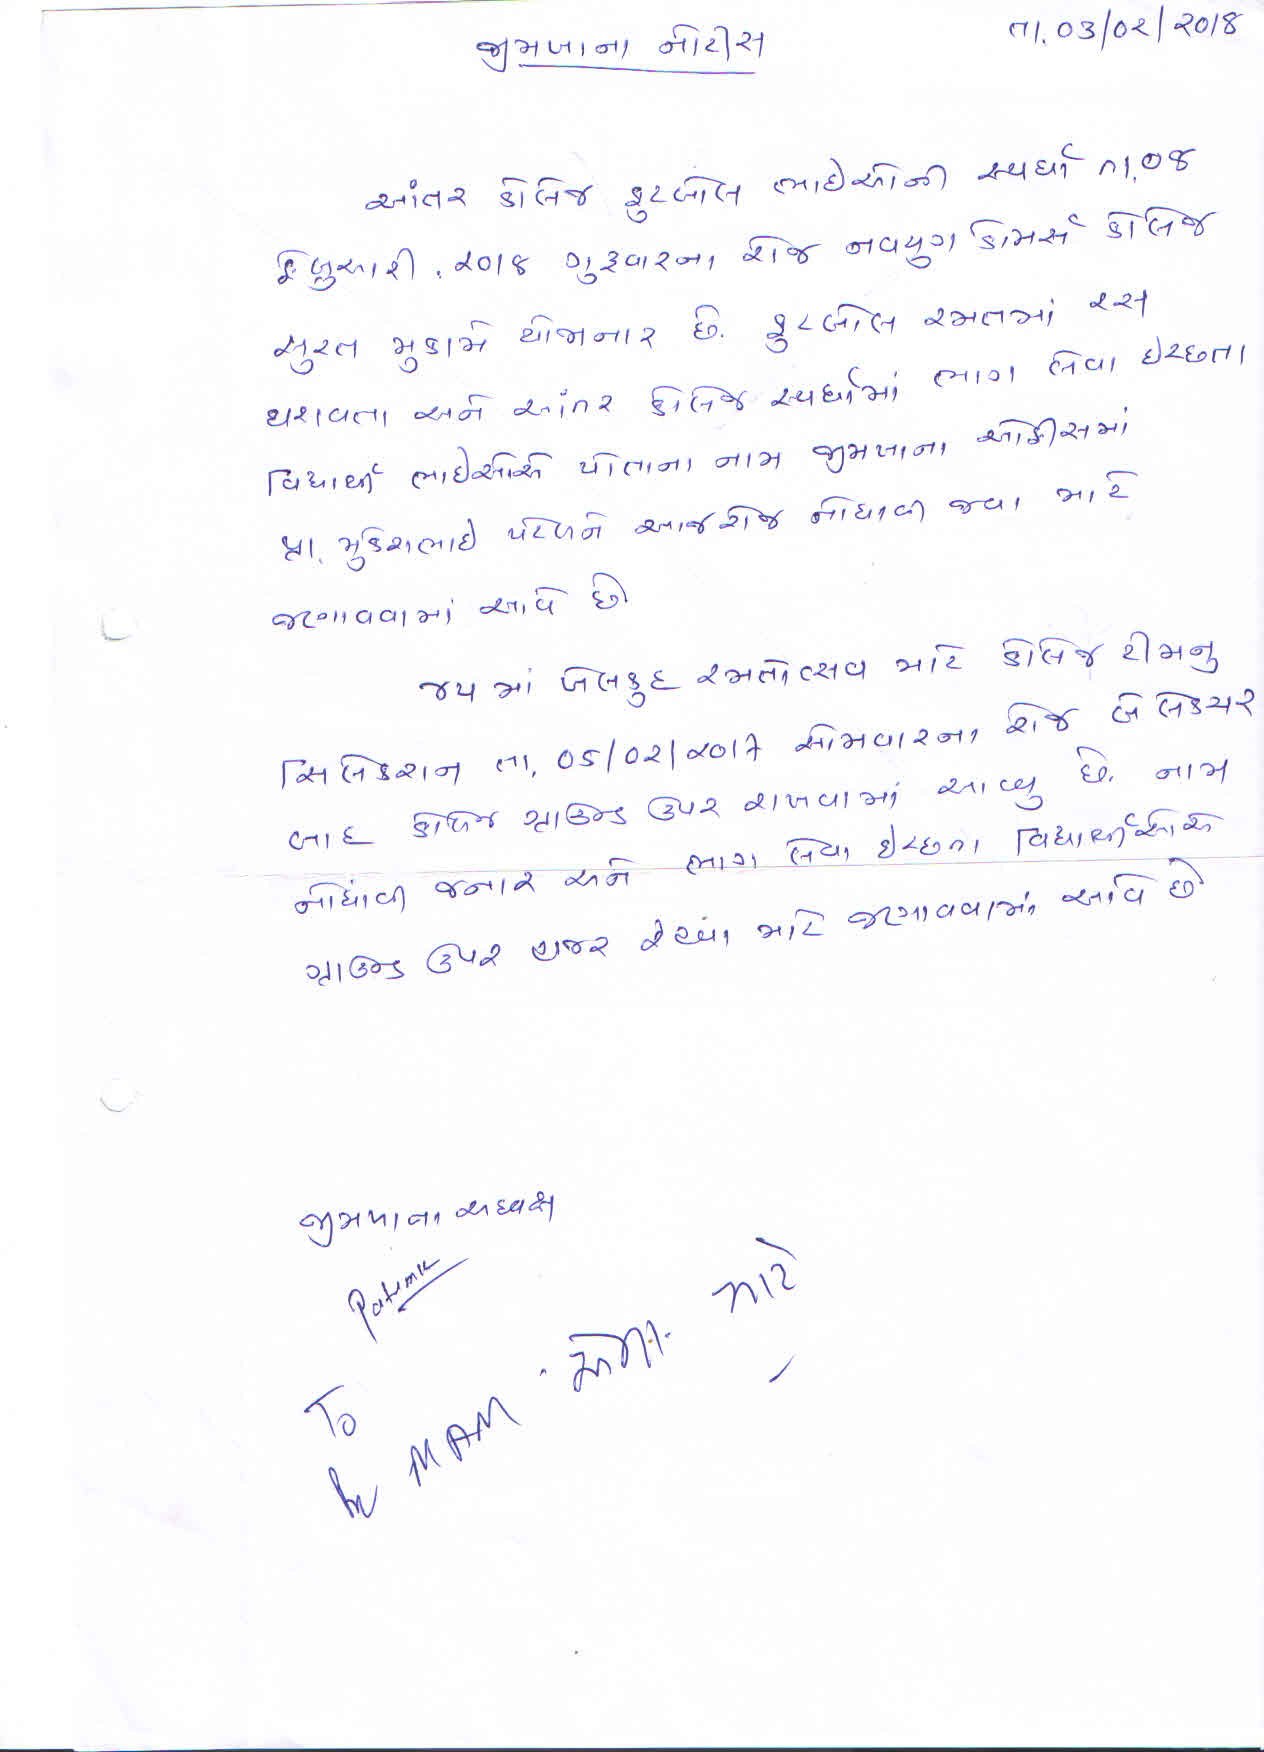 તા. 03/02/2018
જીમખાના નોટીસ
આંતર કોલેજ ફુટબોલ ભાઇઓની સ્પર્ધા તા.08
ફેબ્રુઆરી, ૨૦૧૪ ગુરૂવારના રોજ નવયુગ કોમર્સ કોલેજ
સુરત મુકામે યોજનાર છે. ફુટબોલ રમતમાં રસ
ધરાવતા અને આંતર કોલેજ સ્પર્ધામાં ભાગ લેવા ઇચ્છતા
વિધાર્થી ભાઇઓએ પોતાના નામ જીમખાના ઓફીસમાં
પ્રા. મુકેશભાઇ પટેલને આજરોજ નોંધાવી જવા માટે
જણાવવામાં આવે છે
માં ખેલકુદ રમતોત્સવ માટે કોલેજ ટીમનુ
સિલેકશન તા. 05/02/૨૦1૭ સોમવારના રોજ બે લેકચર
બાદ કોલેજ ગ્રાઉન્ડ ઉપર રાખવામાં આવ્યુ છે. નામ
નોધાવી જનાર અને ભાગ લેવા ઇચ્છતા વિધાર્થીઓએ
ગ્રાઉન્ડ ઉપર હાજર રહેવા માટે જણાવવામાં આવે છે
જીમખાના અધ્યક્ષ
To
MAM માટે